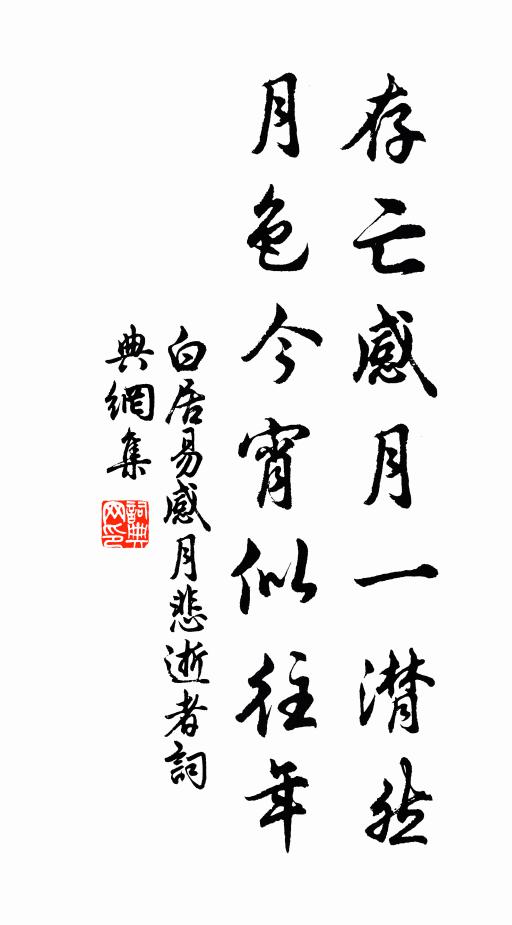 存亡感月一潸然
月色今宵似往年
白居易感月悲逝者詞
典網集
詞典
网印